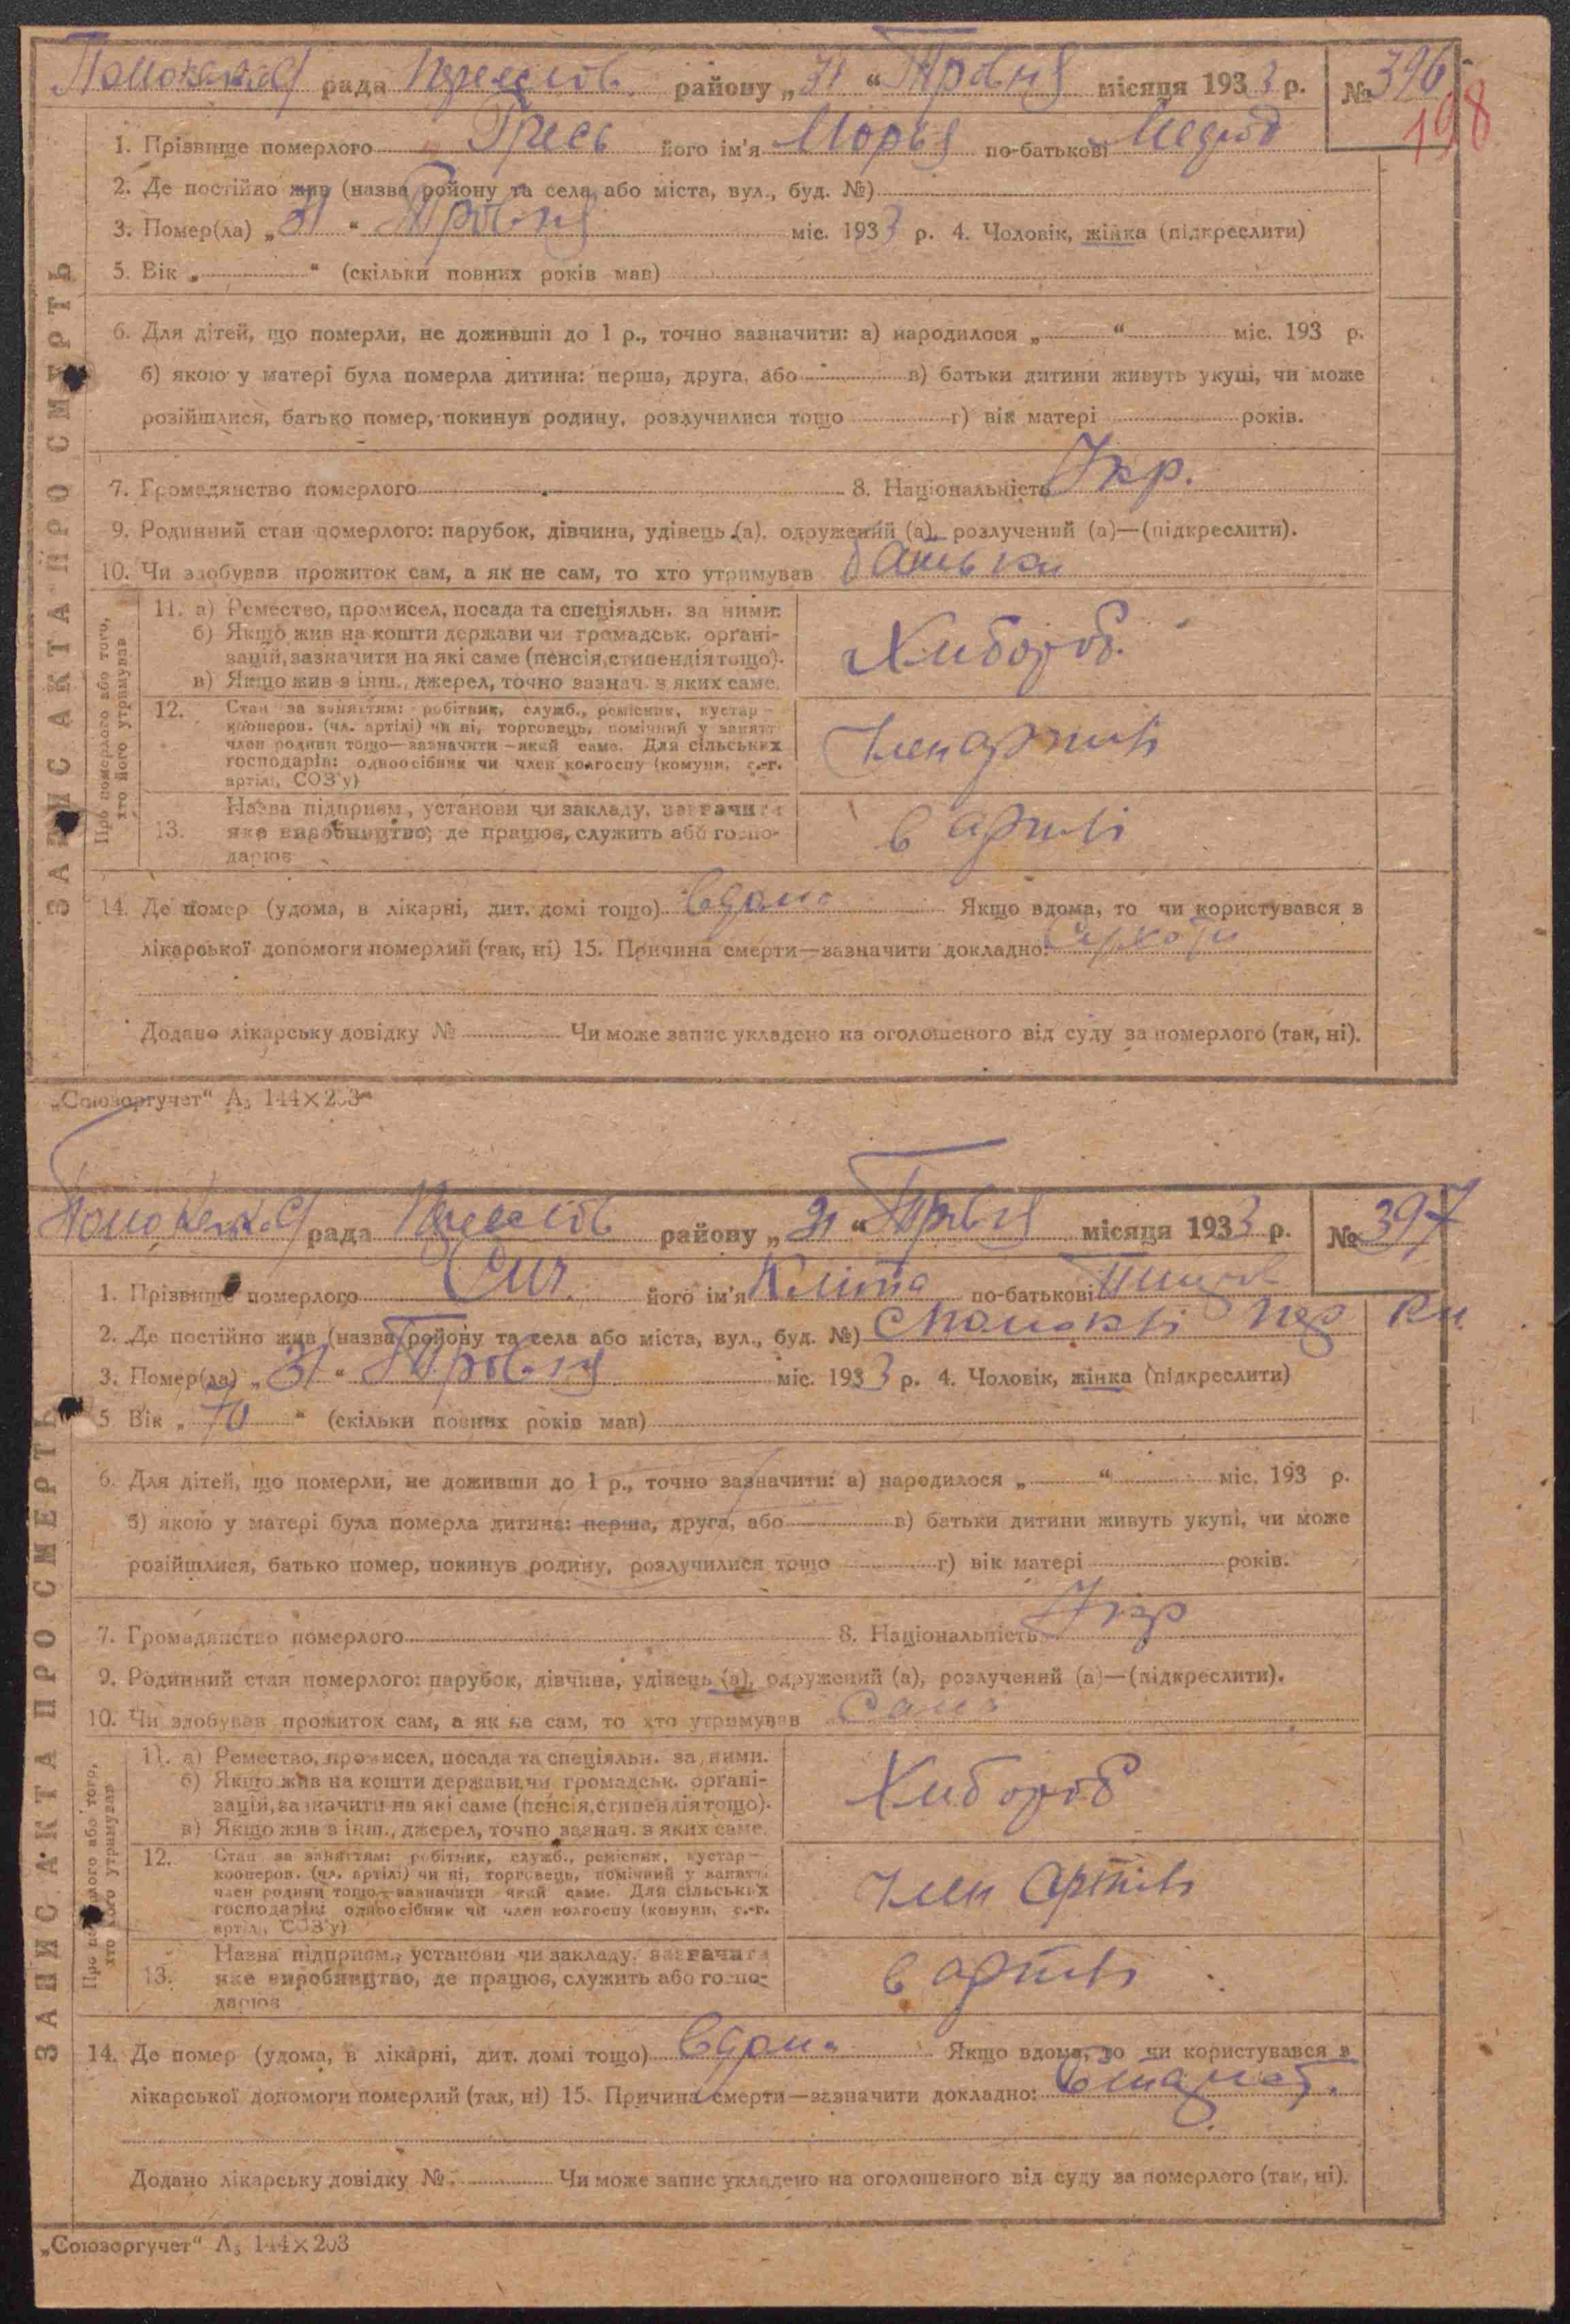 рада району „31“ Травня місяця 1933 р. № 396
198
1. Прізвище померлого Гресь його ім'я Марья по-батькові
2. Де постійно жив (назва району та села або міста, вул., буд. №)
3. Помер(ла) „31“ Травня міс. 1933 р. 4. Чоловік, жінка (підкреслити)
5. Вік „ “ (скільки повних років мав)
6. Для дітей, що померли, не доживши до 1 р., точно зазначити: а) народилося „ “ міс. 193 р.
б) якою у матері була померла дитина: перша, друга, або в) батьки дитини живуть укупі, чи може
розійшлися, батько помер, покинув родину, розлучилися тощо г) вік матері років.
7. Громадянство померлого 8. Національність Укр.
9. Родинний стан померлого: парубок, дівчина, удівець (а), одружений (а), розлучений (а)—(підкреслити).
10. Чи здобував прожиток сам, а як не сам, то хто утримував батьки
ЗАПИС АКТА ПРО СМЕРТЬ
Про померлого або того,
хто його утримував
11. а) Ремество, промисел, посада та спеціяльн. за ними:
б) Якщо жив на кошти держави чи громадськ. орґані-
зацій, зазначити на які саме (пенсія, стипендія тощо).
в) Якщо жив з інш., джерел, точно зазнач. з яких саме.
Хибороб.
12. Стан за заняттям: робітник, служб., ремісник, кустар –
кооперов. (чл. артілі) чи ні, торговець, помічний у занятті
член родини тощо—зазначити—який саме. Для сільських
господарів: одноосібник чи член колгоспу (комуни, с.-г.
артілі, СОЗ'у)
Член артілі
13. Назва підприєм., установи чи закладу, зазначити
яке виробництво, де працює, служить або госпо-
дарює
в артілі
14. Де помер (удома, в лікарні, дит. домі тощо) вдома Якщо вдома, то чи користувався з
лікарської допомоги померлий (так, ні) 15. Причина смерти—зазначити докладно:
Додано лікарську довідку № Чи може запис укладено на оголошеного від суду за померлого (так, ні).
„Союзоргучет“ А5 144×203
рада району „31“ Травня місяця 1933 р. № 397
1. Прізвище померлого його ім'я по-батькові
2. Де постійно жив (назва району та села або міста, вул., буд. №)
3. Помер(ла) „31“ Травня міс. 1933 р. 4. Чоловік, жінка (підкреслити)
5. Вік „70“ (скільки повних років мав)
6. Для дітей, що померли, не доживши до 1 р., точно зазначити: а) народилося „ “ міс. 193 р.
б) якою у матері була померла дитина: перша, друга, або в) батьки дитини живуть укупі, чи може
розійшлися, батько помер, покинув родину, розлучилися тощо г) вік матері років.
7. Громадянство померлого 8. Національність Укр
9. Родинний стан померлого: парубок, дівчина, удівець (а), одружений (а), розлучений (а)—(підкреслити).
10. Чи здобував прожиток сам, а як не сам, то хто утримував Сама
ЗАПИС АКТА ПРО СМЕРТЬ
Про померлого або того,
хто його утримував
11. а) Ремество, промисел, посада та спеціяльн. за ними.
б) Якщо жив на кошти держави чи громадськ. орґані-
зацій, зазначити на які саме (пенсія, стипендія тощо).
в) Якщо жив з інш., джерел, точно зазнач. з яких саме.
Хибороб
12. Стан за заняттям: робітник, служб., ремісник, кустар –
кооперов. (чл. артілі) чи ні, торговець, помічний у занятті
член родини тощо—зазначити який саме. Для сільських
господарів: одноосібник чи член колгоспу (комуни, с.-г.
артілі, СОЗ'у)
Член артілі
13. Назва підприєм., установи чи закладу, зазначити
яке виробництво, де працює, служить або госпо-
дарює
в артілі
14. Де помер (удома, в лікарні, дит. домі тощо) вдома Якщо вдома, то чи користувався з
лікарської допомоги померлий (так, ні) 15. Причина смерти—зазначити докладно:
Додано лікарську довідку № Чи може запис укладено на оголошеного від суду за померлого (так, ні).
„Союзоргучет“ А5 144×203